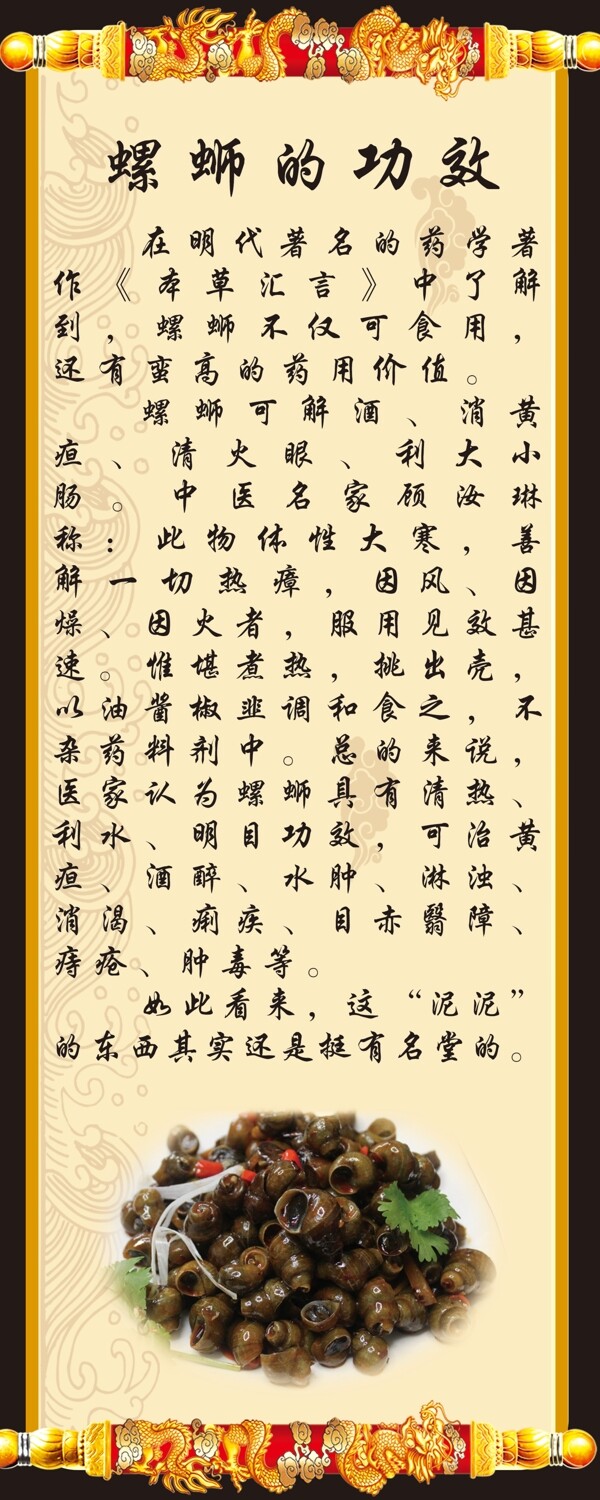 螺蛳的功效
在明代著名的药学著
作《本草汇言》中了解
到，螺蛳不仅可食用，
还有蛮高的药用价值。
螺蛳可解酒、消黄
疸、清火眼、利大小
肠。中医名家顾汝琳
称：此物体性大寒，善
解一切热瘴，因风、因
燥、因火者，服用见效甚
速。惟堪煮热，挑出壳，
以油酱椒韭调和食之，不
杂药料剂中。总的来说，
医家认为螺蛳具有清热、
利水、明目功效，可治黄
疸、酒醉、水肿、淋浊、
消渴、痢疾、目赤翳障、
痔疮、肿毒等。
如此看来，这“泥泥”
的东西其实还是挺有名堂的。